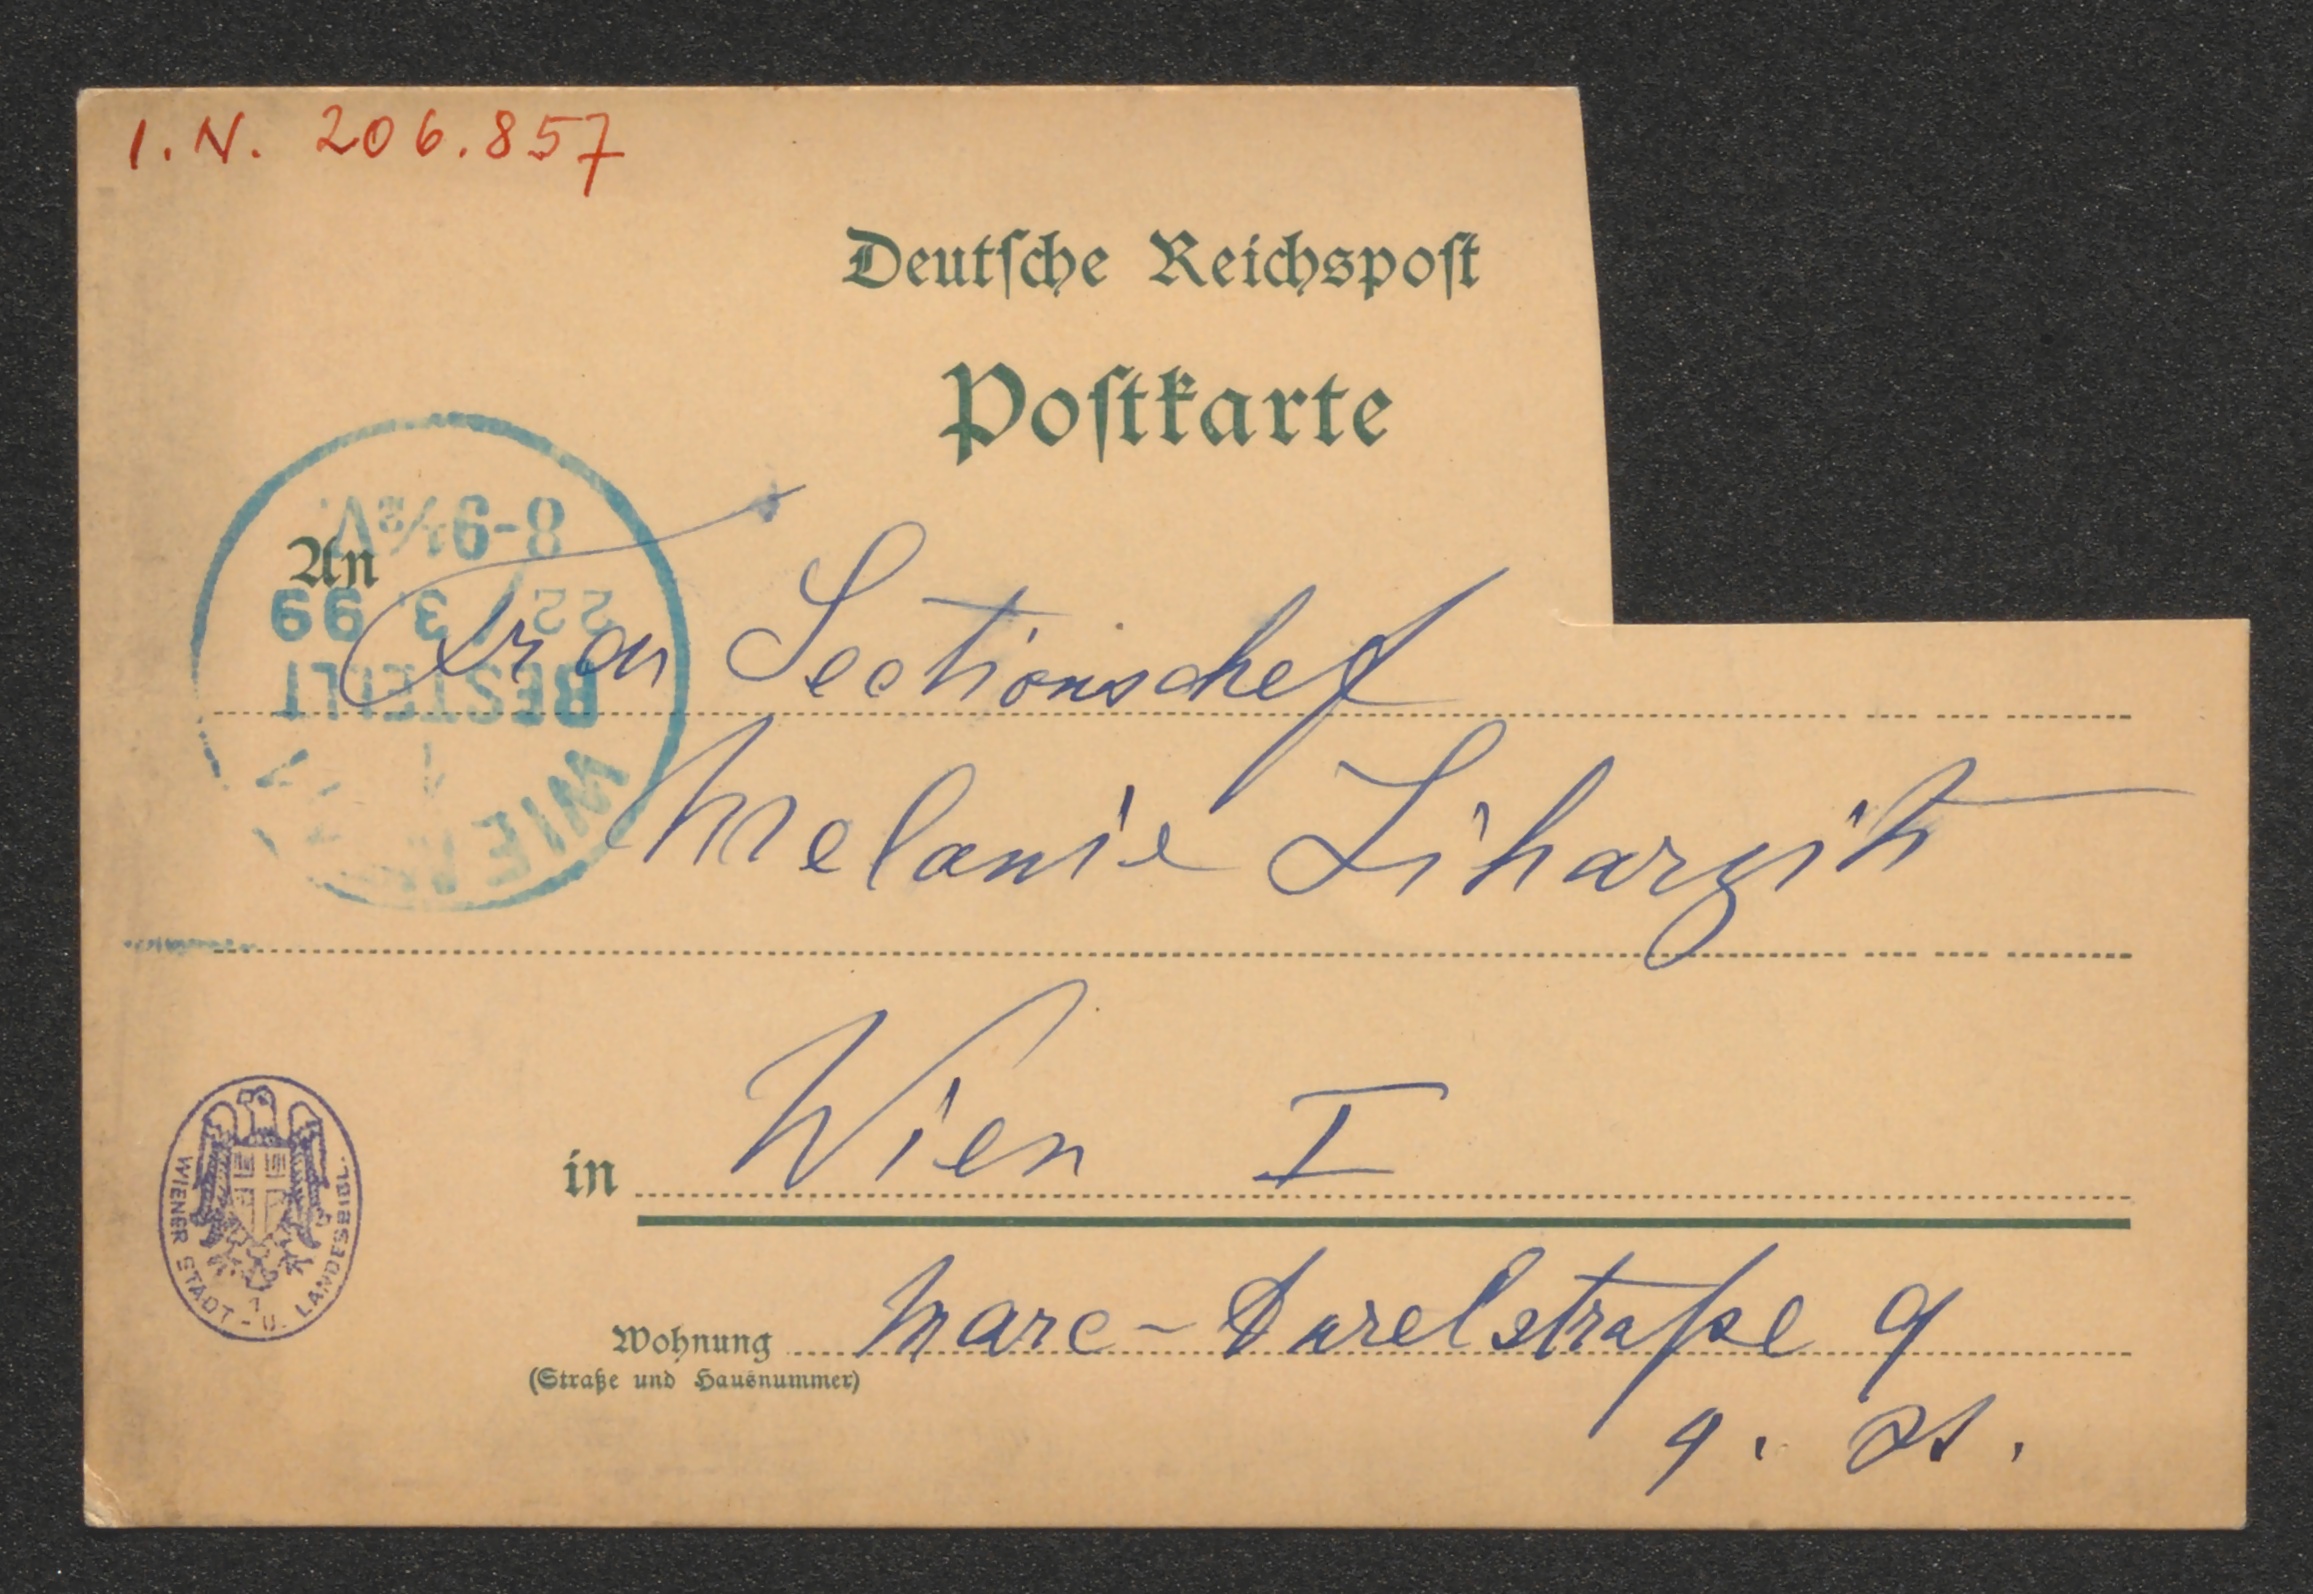 I.N. 206.857
Deutsche Reichspost
Postkarte
8-9½V.
An
22/3. 99
BESTELLT
WIEN
Frau Sectionschef
Melanie Liharzik
in Wien I
Wohnung Marc-Aurelstraße 9
(Straße und Hausnummer)
WIENER STADT-U. LANDESBIBL.